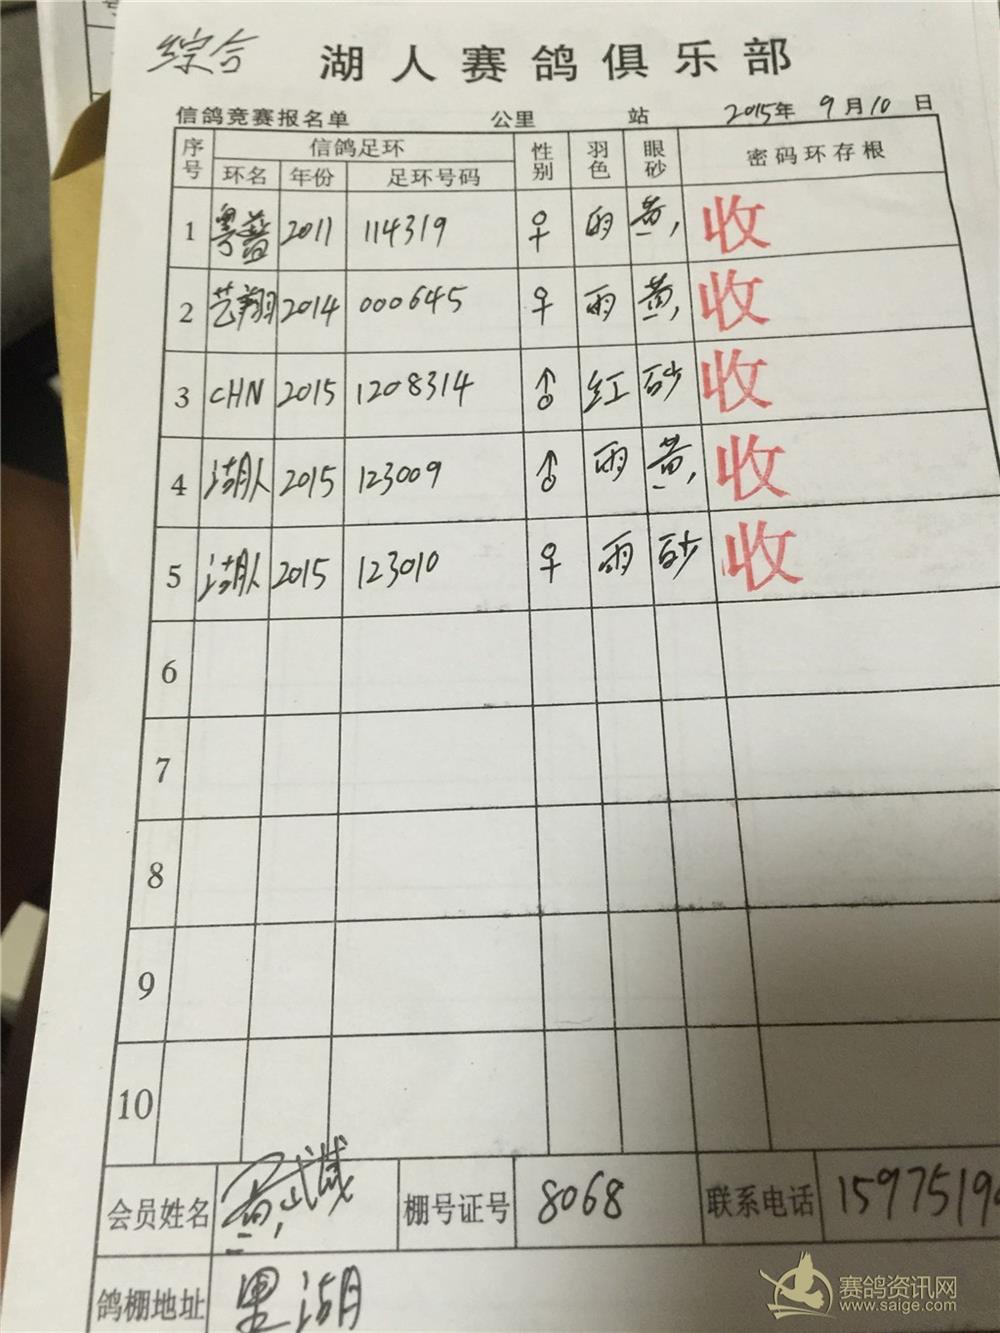 综合 湖人赛鸽俱乐部
信鸽竞赛报名单 公里 站 2015年 9月10日
序号 信鸽足环 性别 羽色 眼砂 密码环存根
环名 年份 足环号码
1 2011 114319 ♀ 雨 黄 收
2 艺翔 2014 000645 ♀ 雨 黄 收
3 CHN 2015 1208314 ♂ 红 砂 收
4 湖人 2015 123009 ♂ 雨 黄 收
5 湖人 2015 123010 ♀ 雨 砂 收
6
7
8
9
10
会员姓名 棚号证号 8068 联系电话 1597519
鸽棚地址 里湖
赛鸽资讯网
www.saige.com